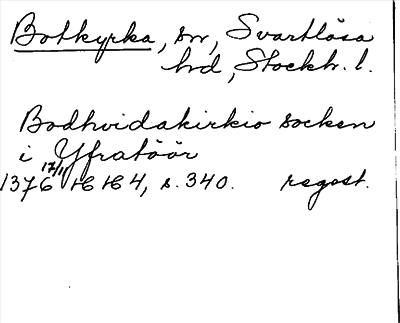 Botkyrka, sn, Svartlösa
hd, Stockh. l.
Bodhvidakirkio socken
i Yfratöör
1376 17/11 HH 4, s. 340. regest.